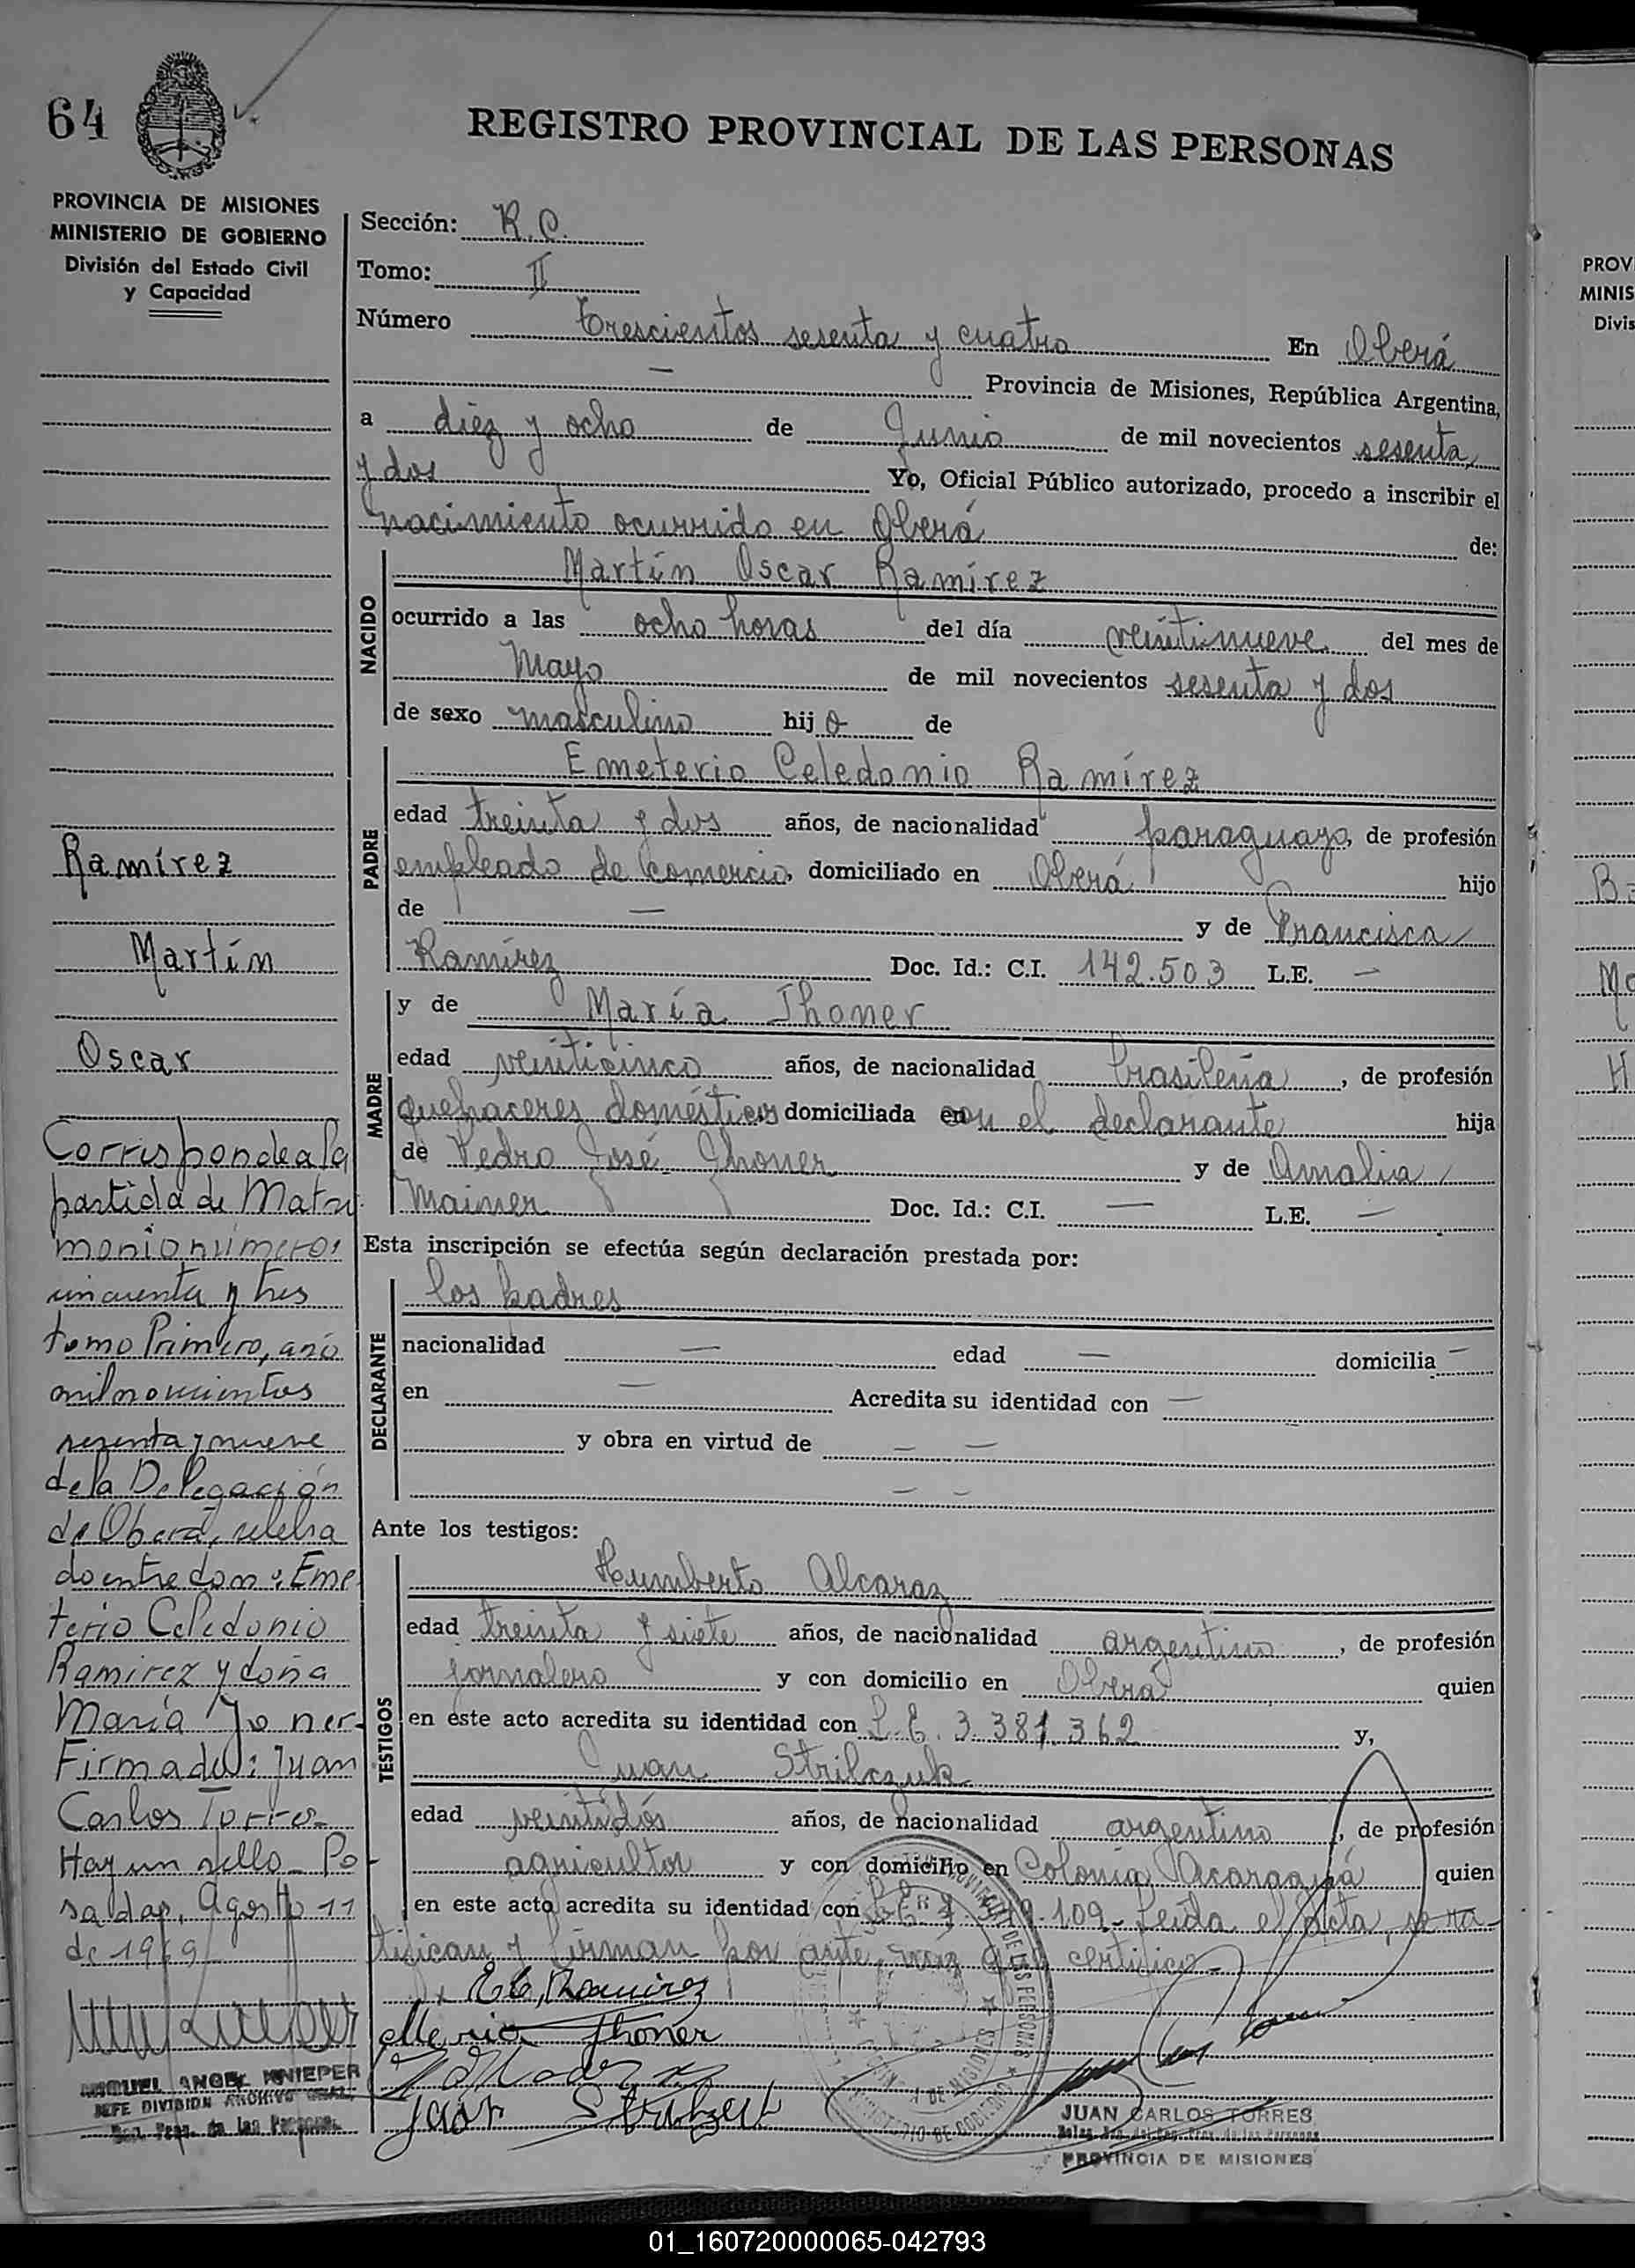 64
REGISTRO PROVINCIAL DE LAS PERSONAS
PROVINCIA DE MISIONES
MINISTERIO DE GOBIERNO
División del Estado Civil
y Capacidad
Sección: R.C.
Tomo: II
Número trescientos sesenta y cuatro En Oberá
— Provincia de Misiones, República Argentina,
a diez y ocho de Junio de mil novecientos sesenta
y dos Yo, Oficial Público autorizado, procedo a inscribir el
nacimiento ocurrido en Oberá de:
NACIDO
Martín Oscar Ramírez
ocurrido a las ocho horas del día veintinueve del mes de
Mayo de mil novecientos sesenta y dos
de sexo masculino hijo de
PADRE
Emeterio Celedonio Ramírez
edad treinta y dos años, de nacionalidad paraguayo, de profesión
empleado de comercio, domiciliado en Oberá hijo
de — y de Francisca
Ramírez Doc. Id.: C.I. 142.503 L.E. —
MADRE
y de María Jhoner
edad veinticinco años, de nacionalidad brasileña, de profesión
quehaceres domésticos domiciliada con el declarante hija
de Pedro José Jhoner y de Amalia
Mainer Doc. Id.: C.I. — L.E. —
Esta inscripción se efectúa según declaración prestada por:
DECLARANTE
los padres
nacionalidad — edad — domicilia —
en — Acredita su identidad con —
y obra en virtud de — —
— —
Ante los testigos:
TESTIGOS
Humberto Alcaraz
edad treinta y siete años, de nacionalidad argentino, de profesión
jornalero y con domicilio en Oberá quien
en este acto acredita su identidad con L.E. 3.381.362 y,
Juan Strilczuk
edad veintidós años, de nacionalidad argentino, de profesión
agricultor y con domicilio en Colonia Acaraguá quien
en este acto acredita su identidad con 109.- Leída el acta, se ra-
tifican y firman por ante mí que certifico.-
E.C. Ramirez
Maria Jhoner
Juan Strilczuk
JUAN CARLOS TORRES
PROVINCIA DE MISIONES
Ramírez
Martín
Oscar
Corresponde a la
partida de Matri
monio número:
cincuenta y tres
tomo Primero, año
mil novecientos
sesenta y nueve
de la Delegación
de Oberá, celebra
do entre don: Eme
terio Celedonio
Ramirez y doña
María Joner-
Firmado: Juan
Carlos Torres
Hay un sello- Po-
sadas, Agosto 11
de 1969
MIGUEL ANGEL KNIEPER
JEFE DIVISION ARCHIVO GRAL.
PROV
MINIS
Divis
01_160720000065-042793